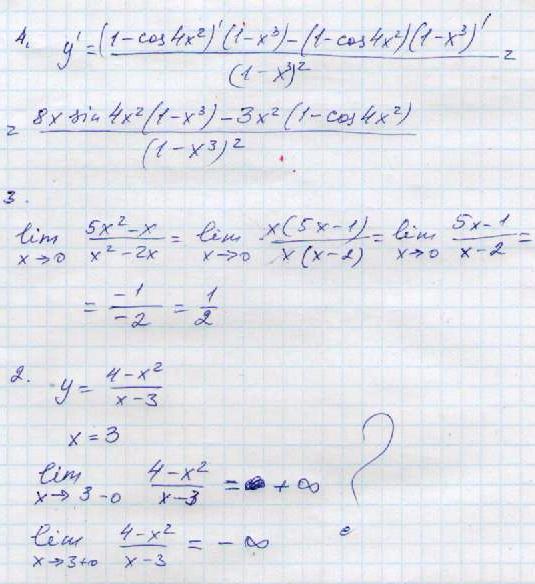 4. y' = ((1-cos4x²)'(1-x³)-(1-cos4x²)(1-x³)')/(1-x³)² =
= (8x sin4x²(1-x³)-3x²(1-cos4x²))/(1-x³)²
3.
lim x→0 (5x²-x)/(x²-2x) = lim x→0 x(5x-1)/x(x-2) = lim x→0 (5x-1)/(x-2) =
= -1/-2 = 1/2
2. y = (4-x²)/(x-3)
x = 3
lim x→3-0 (4-x²)/(x-3) = +∞ ?
lim x→3+0 (4-x²)/(x-3) = -∞